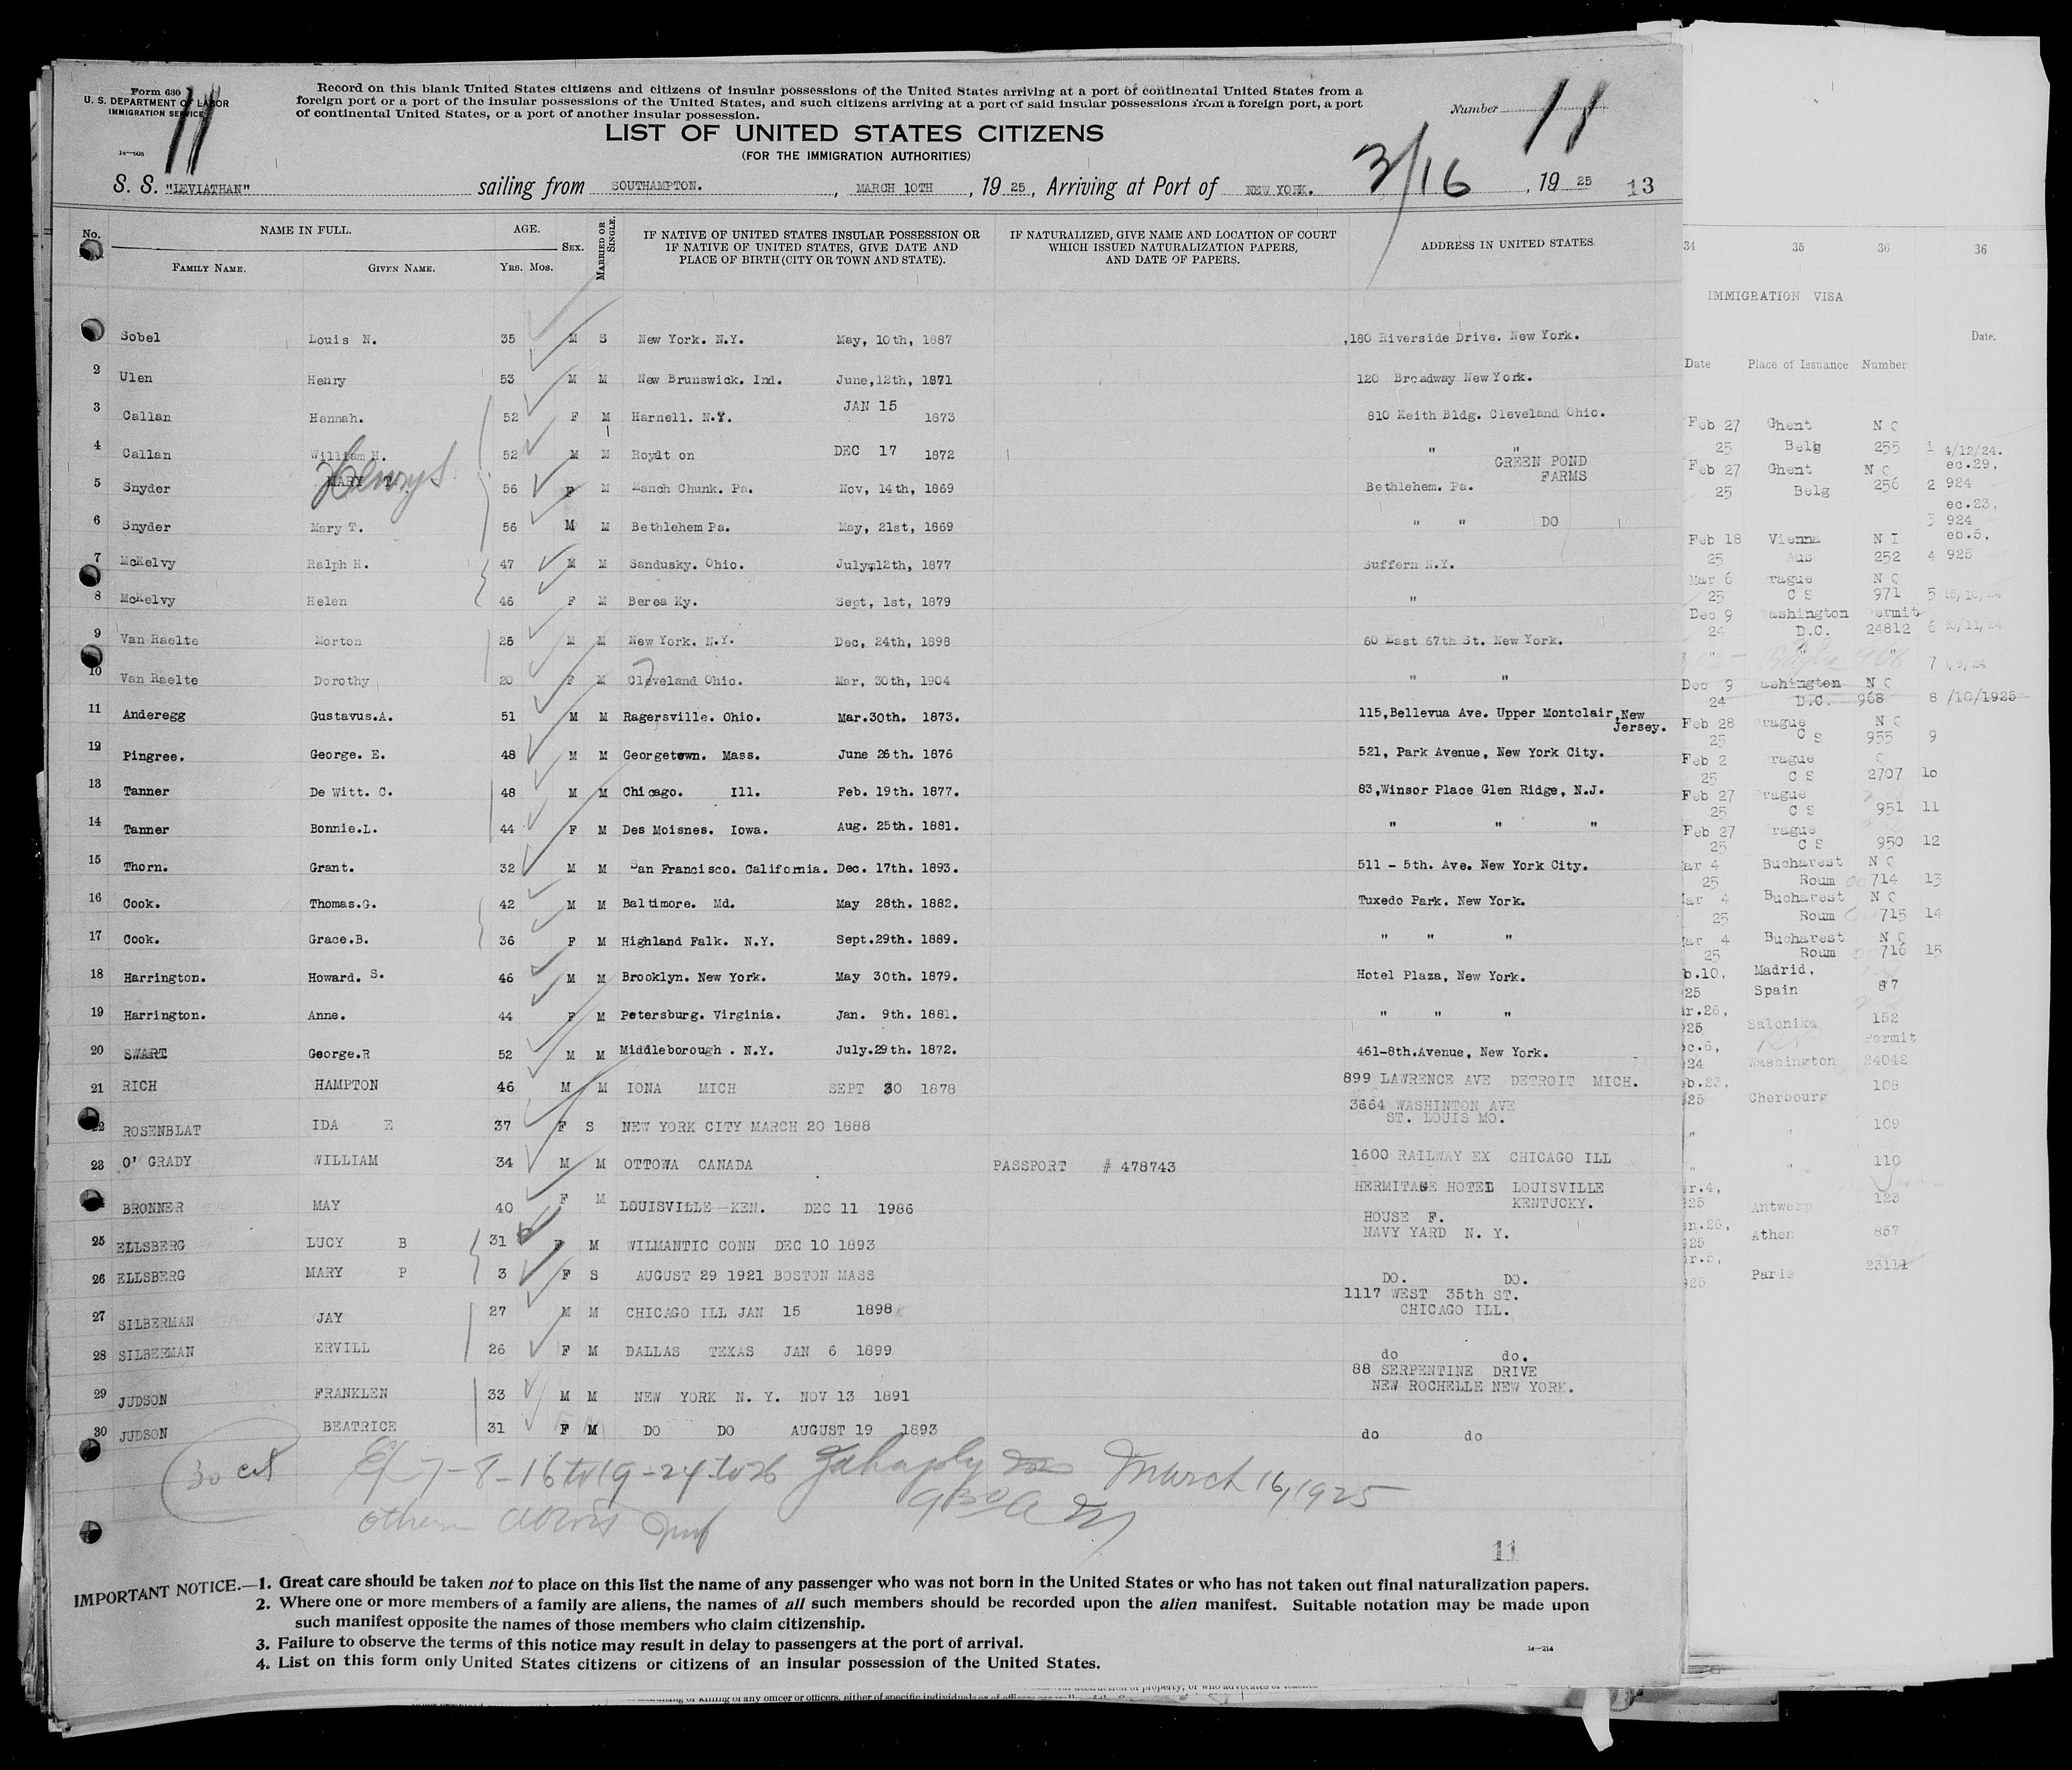 Form 630
U. S. DEPARTMENT OF LABOR
IMMIGRATION SERVICE
11
Record on this blank United States citizens and citizens of insular possessions of the United States arriving at a port of continental United States from a
foreign port or a port of the insular possessions of the United States, and such citizens arriving at a port of said insular possessions from a foreign port, a port
of continental United States, or a port of another insular possession.
Number 11
LIST OF UNITED STATES CITIZENS
(FOR THE IMMIGRATION AUTHORITIES)
S. S. "LEVIATHAN" sailing from SOUTHAMPTON. , MARCH 10TH , 19 25 , Arriving at Port of NEW YORK. 3/16 , 19 25 13
No. NAME IN FULL. AGE. SEX. MARRIED OR SINGLE. IF NATIVE OF UNITED STATES INSULAR POSSESSION OR IF NATIVE OF UNITED STATES, GIVE DATE AND PLACE OF BIRTH (CITY OR TOWN AND STATE). IF NATURALIZED, GIVE NAME AND LOCATION OF COURT WHICH ISSUED NATURALIZATION PAPERS, AND DATE OF PAPERS. ADDRESS IN UNITED STATES.
FAMILY NAME. GIVEN NAME. YRS. MOS.
Sobel Louis N. 35 M S New York. N.Y. May, 10th, 1887 ,180 Riverside Drive. New York.
2 Ulen Henry 53 M M New Brunswick. Ind. June,12th, 1871 120 Broadway New York.
3 Callan Hannah. 52 F M Harnell. N.Y. JAN 15 1873 810 Keith Bldg. Cleveland Ohio.
4 Callan William H. 52 M M Roydt on DEC 17 1872 " "
5 Snyder MARY T. Henry S. 56 F M Manch Chunk. Pa. Nov, 14th, 1869 Bethlehem. Pa. GREEN POND FARMS
6 Snyder Mary T. 56 M M Bethlehem Pa. May, 21st, 1869 " " DO
7 McKelvy Ralph H. 47 M M Sandusky. Ohio. July,12th, 1877 Suffern N.Y.
8 McKelvy Helen 46 F M Berea Ky. Sept, 1st, 1879 "
9 Van Raelte Morton 26 M M New York. N.Y. Dec, 24th, 1898 60 East 67th St. New York.
10 Van Raelte Dorothy 20 F M Cleveland Ohio. Mar, 30th, 1904 " "
11 Anderegg Gustavus.A. 51 M M Ragersville. Ohio. Mar.30th. 1873. 115,Bellevua Ave. Upper Montclair,New Jersey.
12 Pingree. George. E. 48 M M Georgetown. Mass. June 26th. 1876 521, Park Avenue, New York City.
13 Tanner De Witt. C. 48 M M Chicago. Ill. Feb. 19th. 1877. 83,Winsor Place Glen Ridge, N.J.
14 Tanner Bonnie.L. 44 F M Des Moisnes. Iowa. Aug. 25th. 1881. " " "
15 Thorn. Grant. 32 M M San Francisco. California. Dec. 17th. 1893. 511 - 5th. Ave. New York City.
16 Cook. Thomas.G. 42 M M Baltimore. Md. May 28th. 1882. Tuxedo Park. New York.
17 Cook. Grace.B. 36 F M Highland Falk. N.Y. Sept.29th. 1889. " " "
18 Harrington. Howard. S. 46 M M Brooklyn. New York. May 30th. 1879. Hotel Plaza, New York.
19 Harrington. Anne. 44 F M Petersburg. Virginia. Jan. 9th. 1881. " " "
20 SWART George.R 52 M M Middleborough . N.Y. July.29th. 1872. 461-8th.Avenue, New York.
21 RICH HAMPTON 46 M M IONA MICH SEPT 30 1878 899 LAWRENCE AVE DETROIT MICH.
22 ROSENBLAT IDA E 37 F S NEW YORK CITY MARCH 20 1888 3664 WASHINTON AVE ST. LOUIS MO.
23 O' GRADY WILLIAM 34 M M OTTOWA CANADA PASSPORT # 478743 1600 RAILWAY EX CHICAGO ILL
BRONNER MAY 40 F M LOUISVILLE KEN. DEC 11 1986 HERMITAGE HOTEL LOUISVILLE KENTUCKY.
25 ELLSBERG LUCY B 31 F M WILMANTIC CONN DEC 10 1893 HOUSE F. NAVY YARD N. Y.
26 ELLSBERG MARY P 3 F S AUGUST 29 1921 BOSTON MASS DO. DO.
27 SILBERMAN JAY 27 M M CHICAGO ILL JAN 15 1898 1117 WEST 35th ST. CHICAGO ILL.
28 SILBERMAN ERVILL 26 F M DALLAS TEXAS JAN 6 1899 do do.
29 JUDSON FRANKLEN 33 M M NEW YORK N. Y. NOV 13 1891 88 SERPENTINE DRIVE NEW ROCHELLE NEW YORK.
30 JUDSON BEATRICE 31 F M DO DO AUGUST 19 1893 do do
30 cit 7-8-16 to 19-24 to 26 March 16, 1925
930 AM
11
IMPORTANT NOTICE.—1. Great care should be taken not to place on this list the name of any passenger who was not born in the United States or who has not taken out final naturalization papers.
2. Where one or more members of a family are aliens, the names of all such members should be recorded upon the alien manifest. Suitable notation may be made upon
such manifest opposite the names of those members who claim citizenship.
3. Failure to observe the terms of this notice may result in delay to passengers at the port of arrival.
4. List on this form only United States citizens or citizens of an insular possession of the United States.
14—214
34 35 36 36
IMMIGRATION VISA
Date.
Date Place of Issuance Number
Feb 27 Ghent N Q
25 Belg 255 1 4/12/24.
Feb 27 Ghent N Q ec.29,
25 Belg 256 2 924
ec.23,
3 924
Feb 18 Vienna N I eb.5,
25 Aus 252 4 925
Mar 6 rague N Q
25 C S 971 5
Dec 9 ashington Permit
24 D.C. 24812 6
7
Dec 9 ashington N Q
24 D.C. 968 8 /10/1925
Feb 28 rague N Q
25 C S 955 9
Feb 2 rague Q
25 C S 2707 10
Feb 27 rague
25 C S 951 11
Feb 27 rague
25 C S 950 12
ar 4 Bucharest N Q
25 Roum 714 13
ar 4 Bucharest N Q
25 Roum 715 14
ar 4 Bucharest N Q
25 Roum 716 15
b.10, Madrid,
25 Spain 87
r.26,
925 Salonika 152
c.6, Permit
24 Washington 24042
b.23, 108
25 Cherbourg
" " 109
" " 110
r.4,
25 Antwerp 123
n.26, Athen 857
25
r.5,
925 Paris 23111